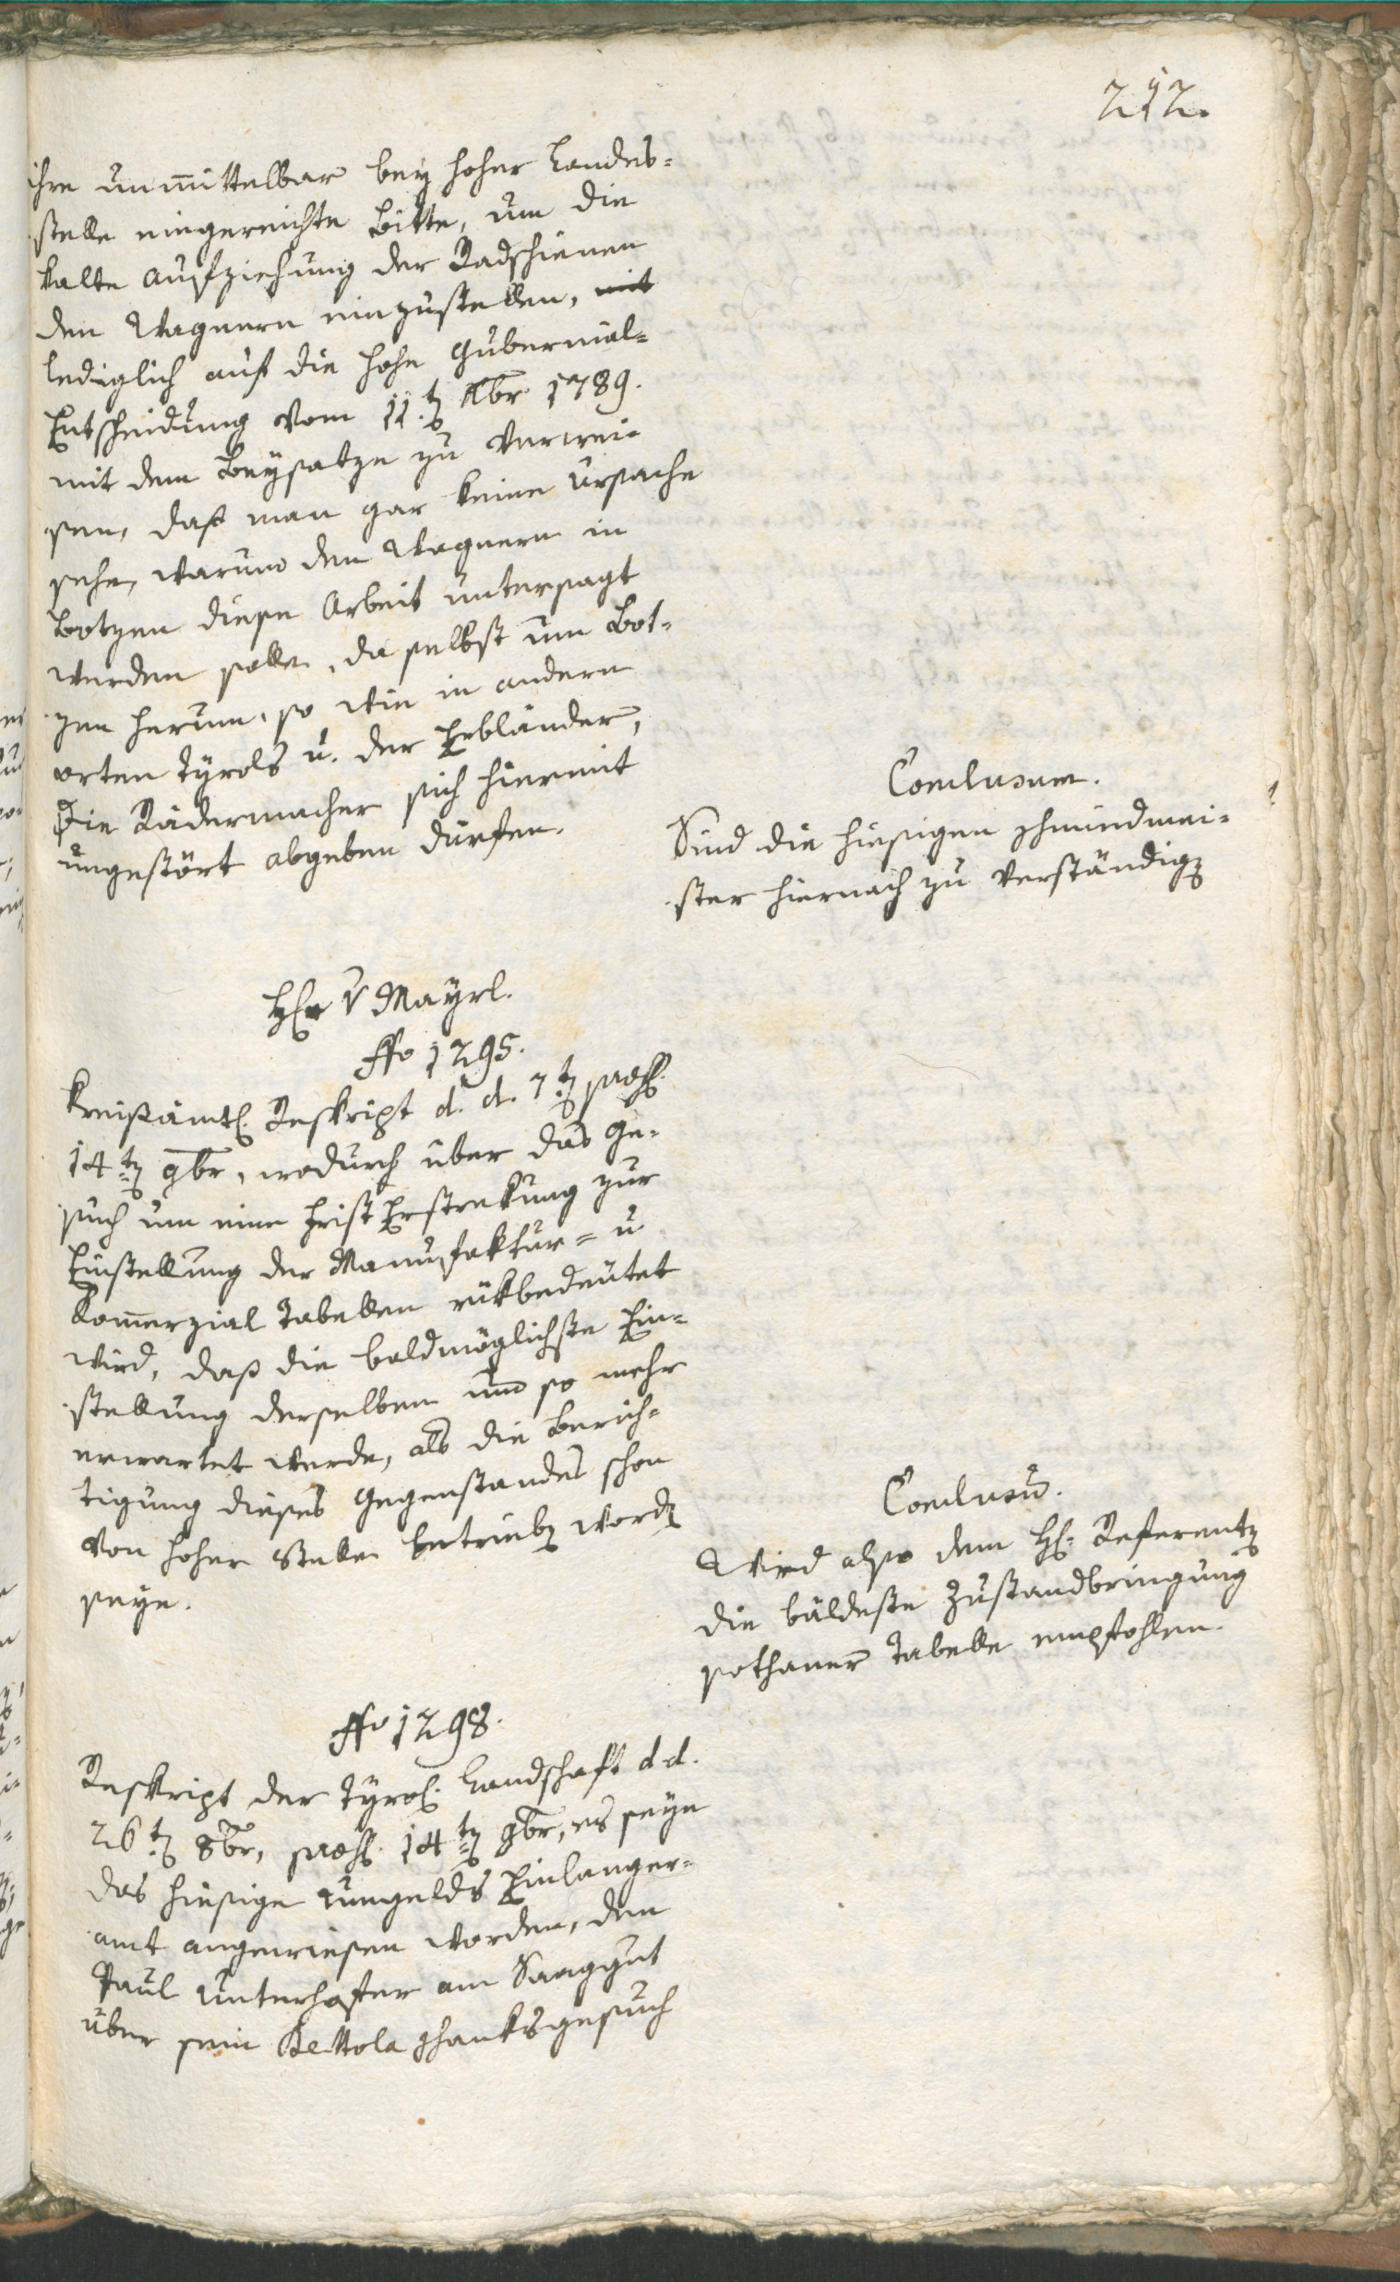 212.
ihre unmittelbar bey hoher Landes=
stelle eingereichte Bitte, um die
kalte Aufziehung der Radschienen
den Wagnern einzustellen, mit
lediglich auf die hohe Gubernial=
Entscheidung vom 11.t 1789.
mit dem Beysatze zu verwei=
sen, daß man gar keine Ursache
sehe, warum den Wagnern in
Botzen diese Arbeit untersagt
werden solle, da selbst um Bot=
zen herum, so wie in andern
orten Tyrols u. der Erbländer,
die Rädermacher sich hiermit
ungestört abgeben dürfen.
Conclusum.
Sind die hiesigen Schmiedmei=
ster hiernach zu verständigen
H. v Mayrl.
No 1295.
Kreisämtl. Reskript d. d. 7t praes.
14t 9br, wodurch über das Ge=
such um eine Frist Erstrekung zur
Einstellung der Manufaktur= u
Kommerzial Tabellen rükbedeutet
wird, daß die baldmöglichste Ein=
stellung derselben um so mehr
erwartet werde, als die Berich=
tigung dieses Gegenstandes schon
von hoher Stelle betrieben worden
seye.
Conclusum.
Wird also dem H: Referenten
die bäldeste Zustandbringung
sothaner Tabelle empfohlen.
No 1298.
Reskript der Tyrol. Landschaft d. d.
26t 8br, praes. 14t 9br, es seye
das hiesige Umgelds Einlanger=
amt angewiesen worden, dem
Paul Unterhofer am
über sein gesuch